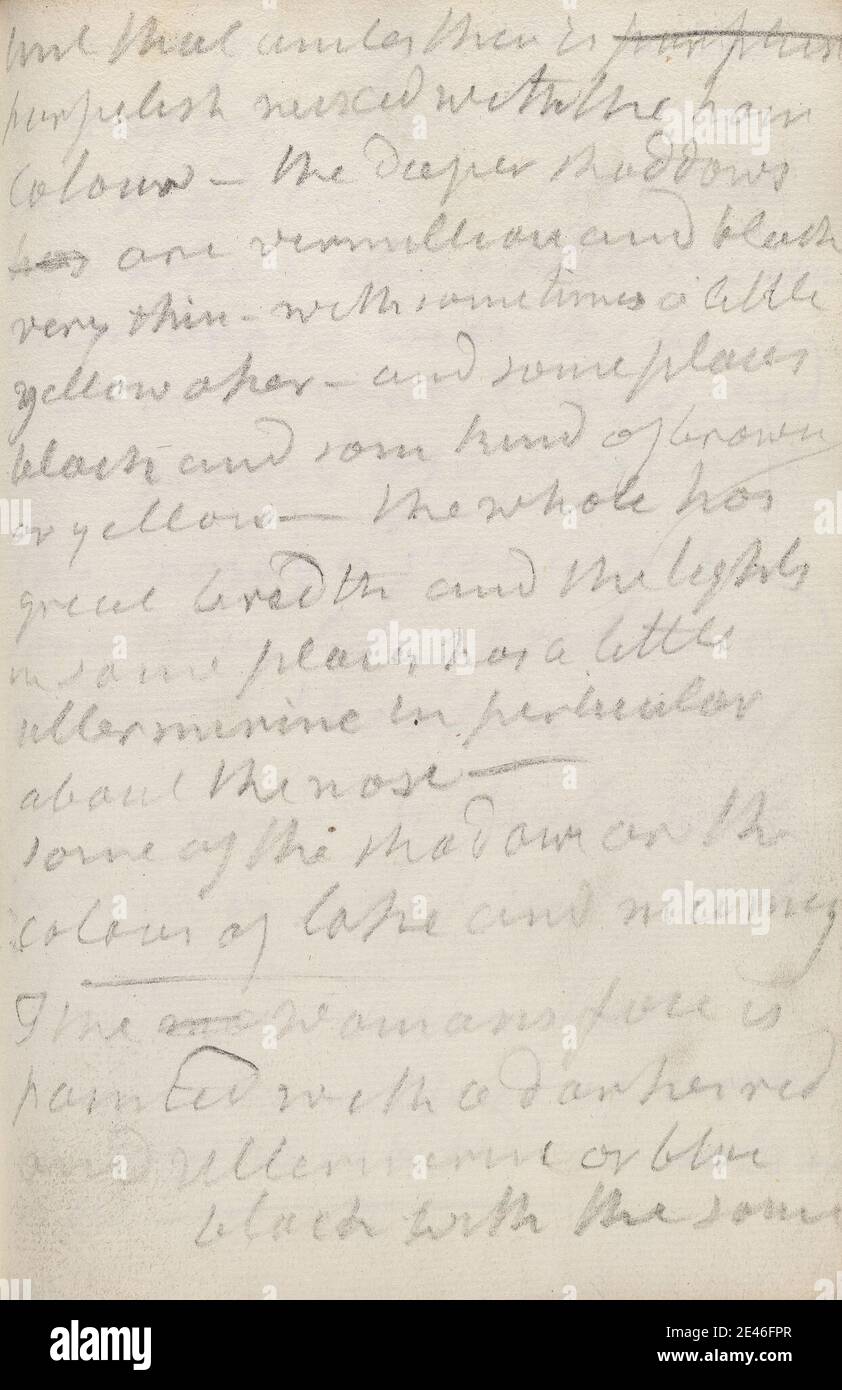 but that another there is purplish
purpelish mixed with the
colour — the deeper shaddows
has are vermillion and black
very thin — with sometimes a little
yellow oker — and some places
black and som kind of brown
or yellow — the whole has
great bredth and the lights
in some places has a little
ultermirine in perticular
about the nose —
some of the shadows are the
colour of lake and mummy
The womans face is
painted with a darker red
and ultermerine or blue
black with the same
alamy
Image ID: 2E46FPR
www.alamy.com